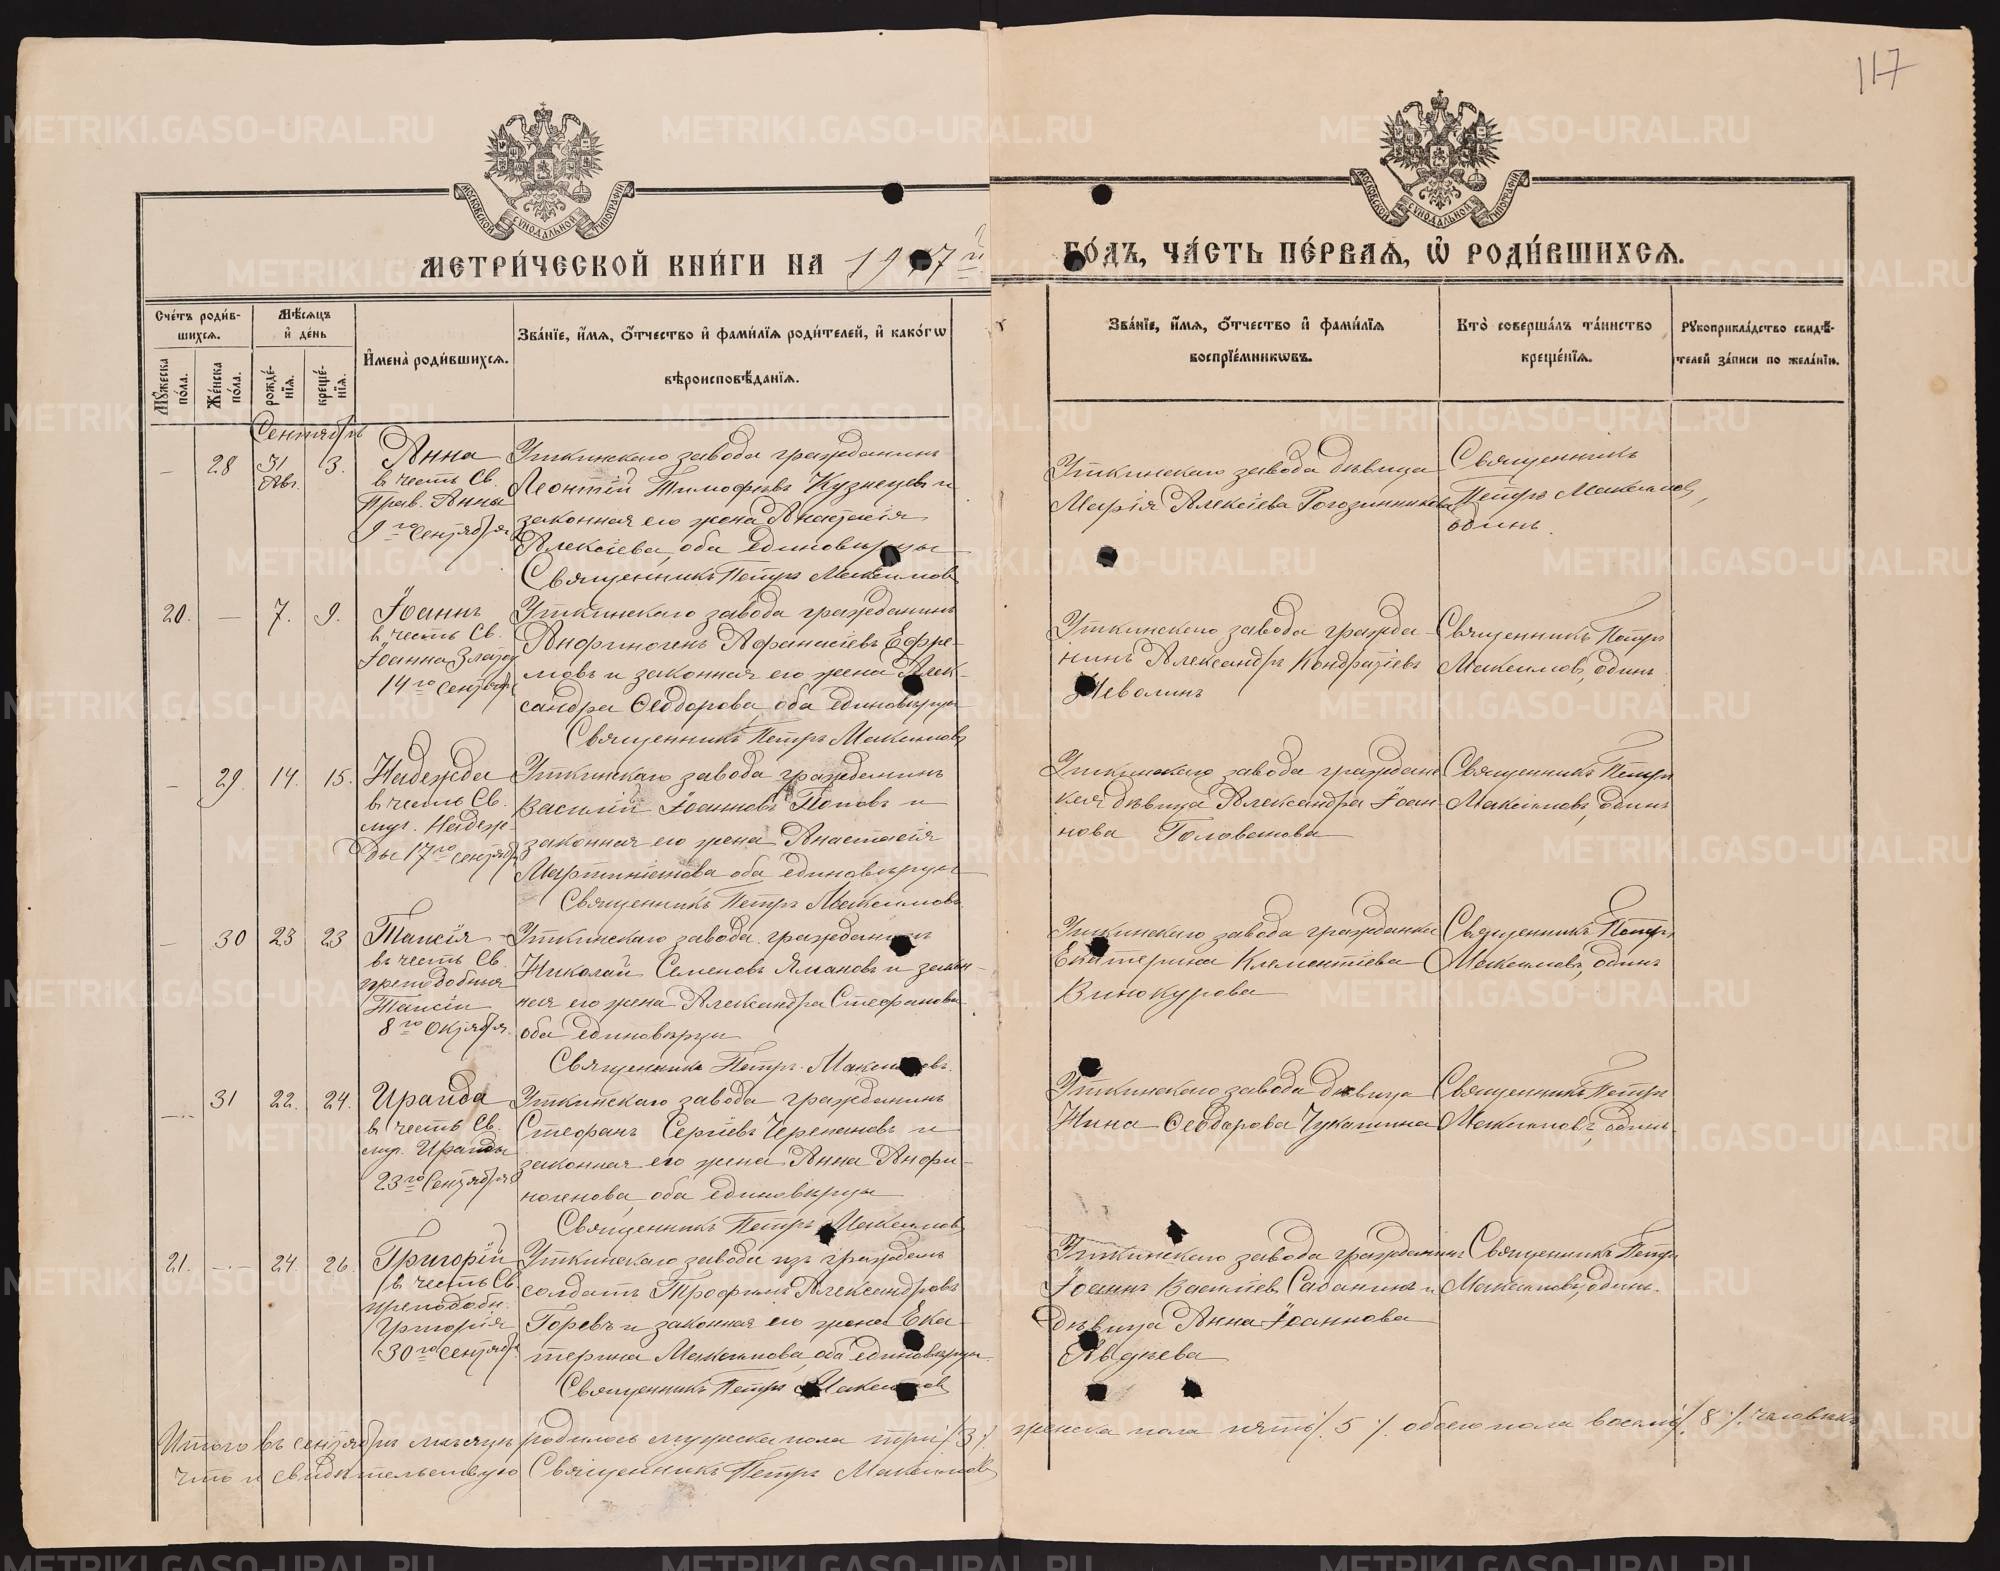 117
МОСКОВСКОЙ СѴНОДАЛЬНОЙ ТИПОГРАФІИ
МОСКОВСКОЙ СѴНОДАЛЬНОЙ ТИПОГРАФІИ
МЕТРИ́ЧЕСКОЙ КНИ́ГИ НА 19 7й
ГО́ДЪ, ЧА́СТЬ ПЕ́РВАѦ, Ѡ҆ РОДИ́ВШИХСѦ.
Сче́тъ роди́в-
шихсѧ.
Мѣ́сѧцъ
и҆ де́нь
Мꙋ́жеска по́ла.
Же́нска по́ла.
рожде́-нїѧ.
креще́-нїѧ.
И҆мена̀ роди́вшихсѧ.
Зва́нїе, и҆́мѧ, ѻ҆́тчество и҆ фами́лїѧ роди́телей, и҆ како́гѡ
вѣроисповѣ́данїѧ.
Зва́нїе, и҆́мѧ, ѻ҆́тчество и҆ фами́лїѧ
воспрїе́мникѡвъ.
Кто̀ соверша́лъ та́инство
креще́нїѧ.
Рꙋкоприкла́дство свидѣ́-
телей за́писи по жела́нїю.
Сентябрь
— 28 31 Авг. 3.
Анна
в честь Св.
Прав. Анны
9го Сентября
Уткинскаго завода гражданинъ
Леонтій Тимофѣевъ Кузнецовъ и
законная его жена Анастасія
Алексѣева, оба единовѣрцы
Священникъ Петръ Максимовъ
Уткинскаго завода дѣвица
Марія Алексѣева Рогозинникова
Священникъ
Петръ Максимовъ,
одинъ.
20. — 7. 9.
Іоаннъ
в честь Св.
Іоанна Златоу
14го Сентябр
Уткинскаго завода гражданинъ
Анфиногенъ Афанасіевъ Ефре-
мовъ и законная его жена Алек-
сандра Ѳеодорова, оба единовѣрцы
Священникъ Петръ Максимовъ
Уткинскаго завода гражда-
нинъ Александръ Кондратіевъ
Неволинъ
Священникъ Петръ
Максимовъ, одинъ
— 29. 14. 15.
Надежда
в честь Св.
муч. Надеж-
ды 17го Сентября
Уткинскаго завода гражданинъ
Василій Іоанновъ Поповъ и
законная его жена Анастасія
Мартиніанова оба единовѣрцы
Священникъ Петръ Максимовъ
Уткинскаго завода граждан
ская дѣвица Александра Іоан-
нова Голованова
Священникъ Петръ
Максимовъ, одинъ
— 30 23 23
Таисія
въ честь Св.
преподобныя
Таисіи
8го Октября.
Уткинскаго завода гражданинъ
Николай Семеновъ Ямановъ и закон-
ная его жена Александра Стефанова
оба единовѣрцы
Священникъ Петръ Максимовъ.
Уткинскаго завода гражданка
Екатерина Клементіева
Винокурова
Священникъ Петръ
Максимовъ, одинъ
— 31 22. 24.
Ираида
в честь Св.
муч. Ираиды
23го Сентября
Уткинскаго завода гражданинъ
Стефанъ Сергіевъ Черепановъ и
законная его жена Анна Анфи-
ногенова, оба единовѣрцы
Священникъ Петръ Максимовъ
Уткинскаго завода дѣвица
Нина Ѳеодорова Чукашина
Священникъ Петръ
Максимовъ, одинъ.
21. — 24. 26.
Григорій
в честь Св.
преподобн.
Григорія
30го Сентября
Уткинскаго завода изъ гражданъ
солдатъ Трофимъ Александровъ
Горевъ и законная его жена Ека-
терина Максимова, оба единовѣрцы.
Священникъ Петръ Максимовъ
Уткинскаго завода гражданинъ
Іоаннъ Васильевъ Сабанинъ и
дѣвица Анна Іоаннова
Авдѣева
Священникъ Петръ
Максимовъ, одинъ.
Итого въ сентябрѣ мѣсяцѣ родилось мужеска пола три /.3./. женска пола пять /.5./. обоего пола восемь /.8./. человѣкъ
что и свидѣтельствую Священникъ Петръ Максимовъ
METRIKI.GASO-URAL.RU